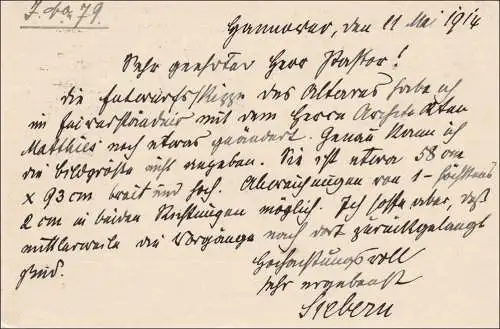 J. No. 79.
Hannover, den 11 Mai 1914
Sehr geehrter Herr Pastor!
die Entwurfsskizze des Altares habe ich
im Einverständnis mit dem Herrn Architekten
Matthies noch etwas geändert. Genau kann ich
die Bildgröße nicht angeben. Sie ist etwa 58 cm
x 93 cm breit und hoch. Abweichungen von 1 - höchstens
2 cm in beiden Richtungen möglich. Ich hoffe aber, daß
mittlerweile die Vorgänge nach dort zurückgelangt
sind.
Hochachtungsvoll
sehr ergebenst
Siebern